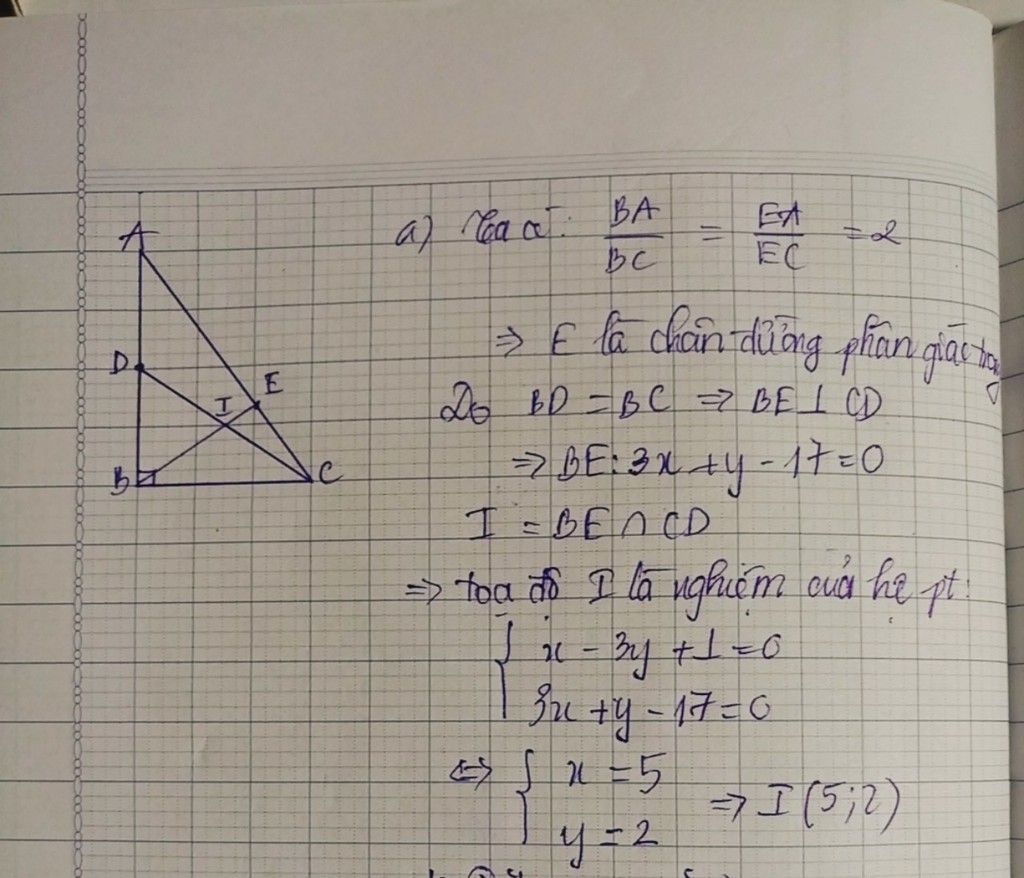 A
D
E
I
B
C
a) Ta có: BA/BC = EA/EC = 2
⇒ E là chân đường phân giác trong
Do BD = BC ⇒ BE ⊥ CD
⇒ BE: 3x + y - 17 = 0
I = BE ∩ CD
⇒ toạ độ I là nghiệm của hệ pt:
{ x - 3y + 1 = 0
3x + y - 17 = 0
⇔ { x = 5
y = 2
⇒ I (5; 2)